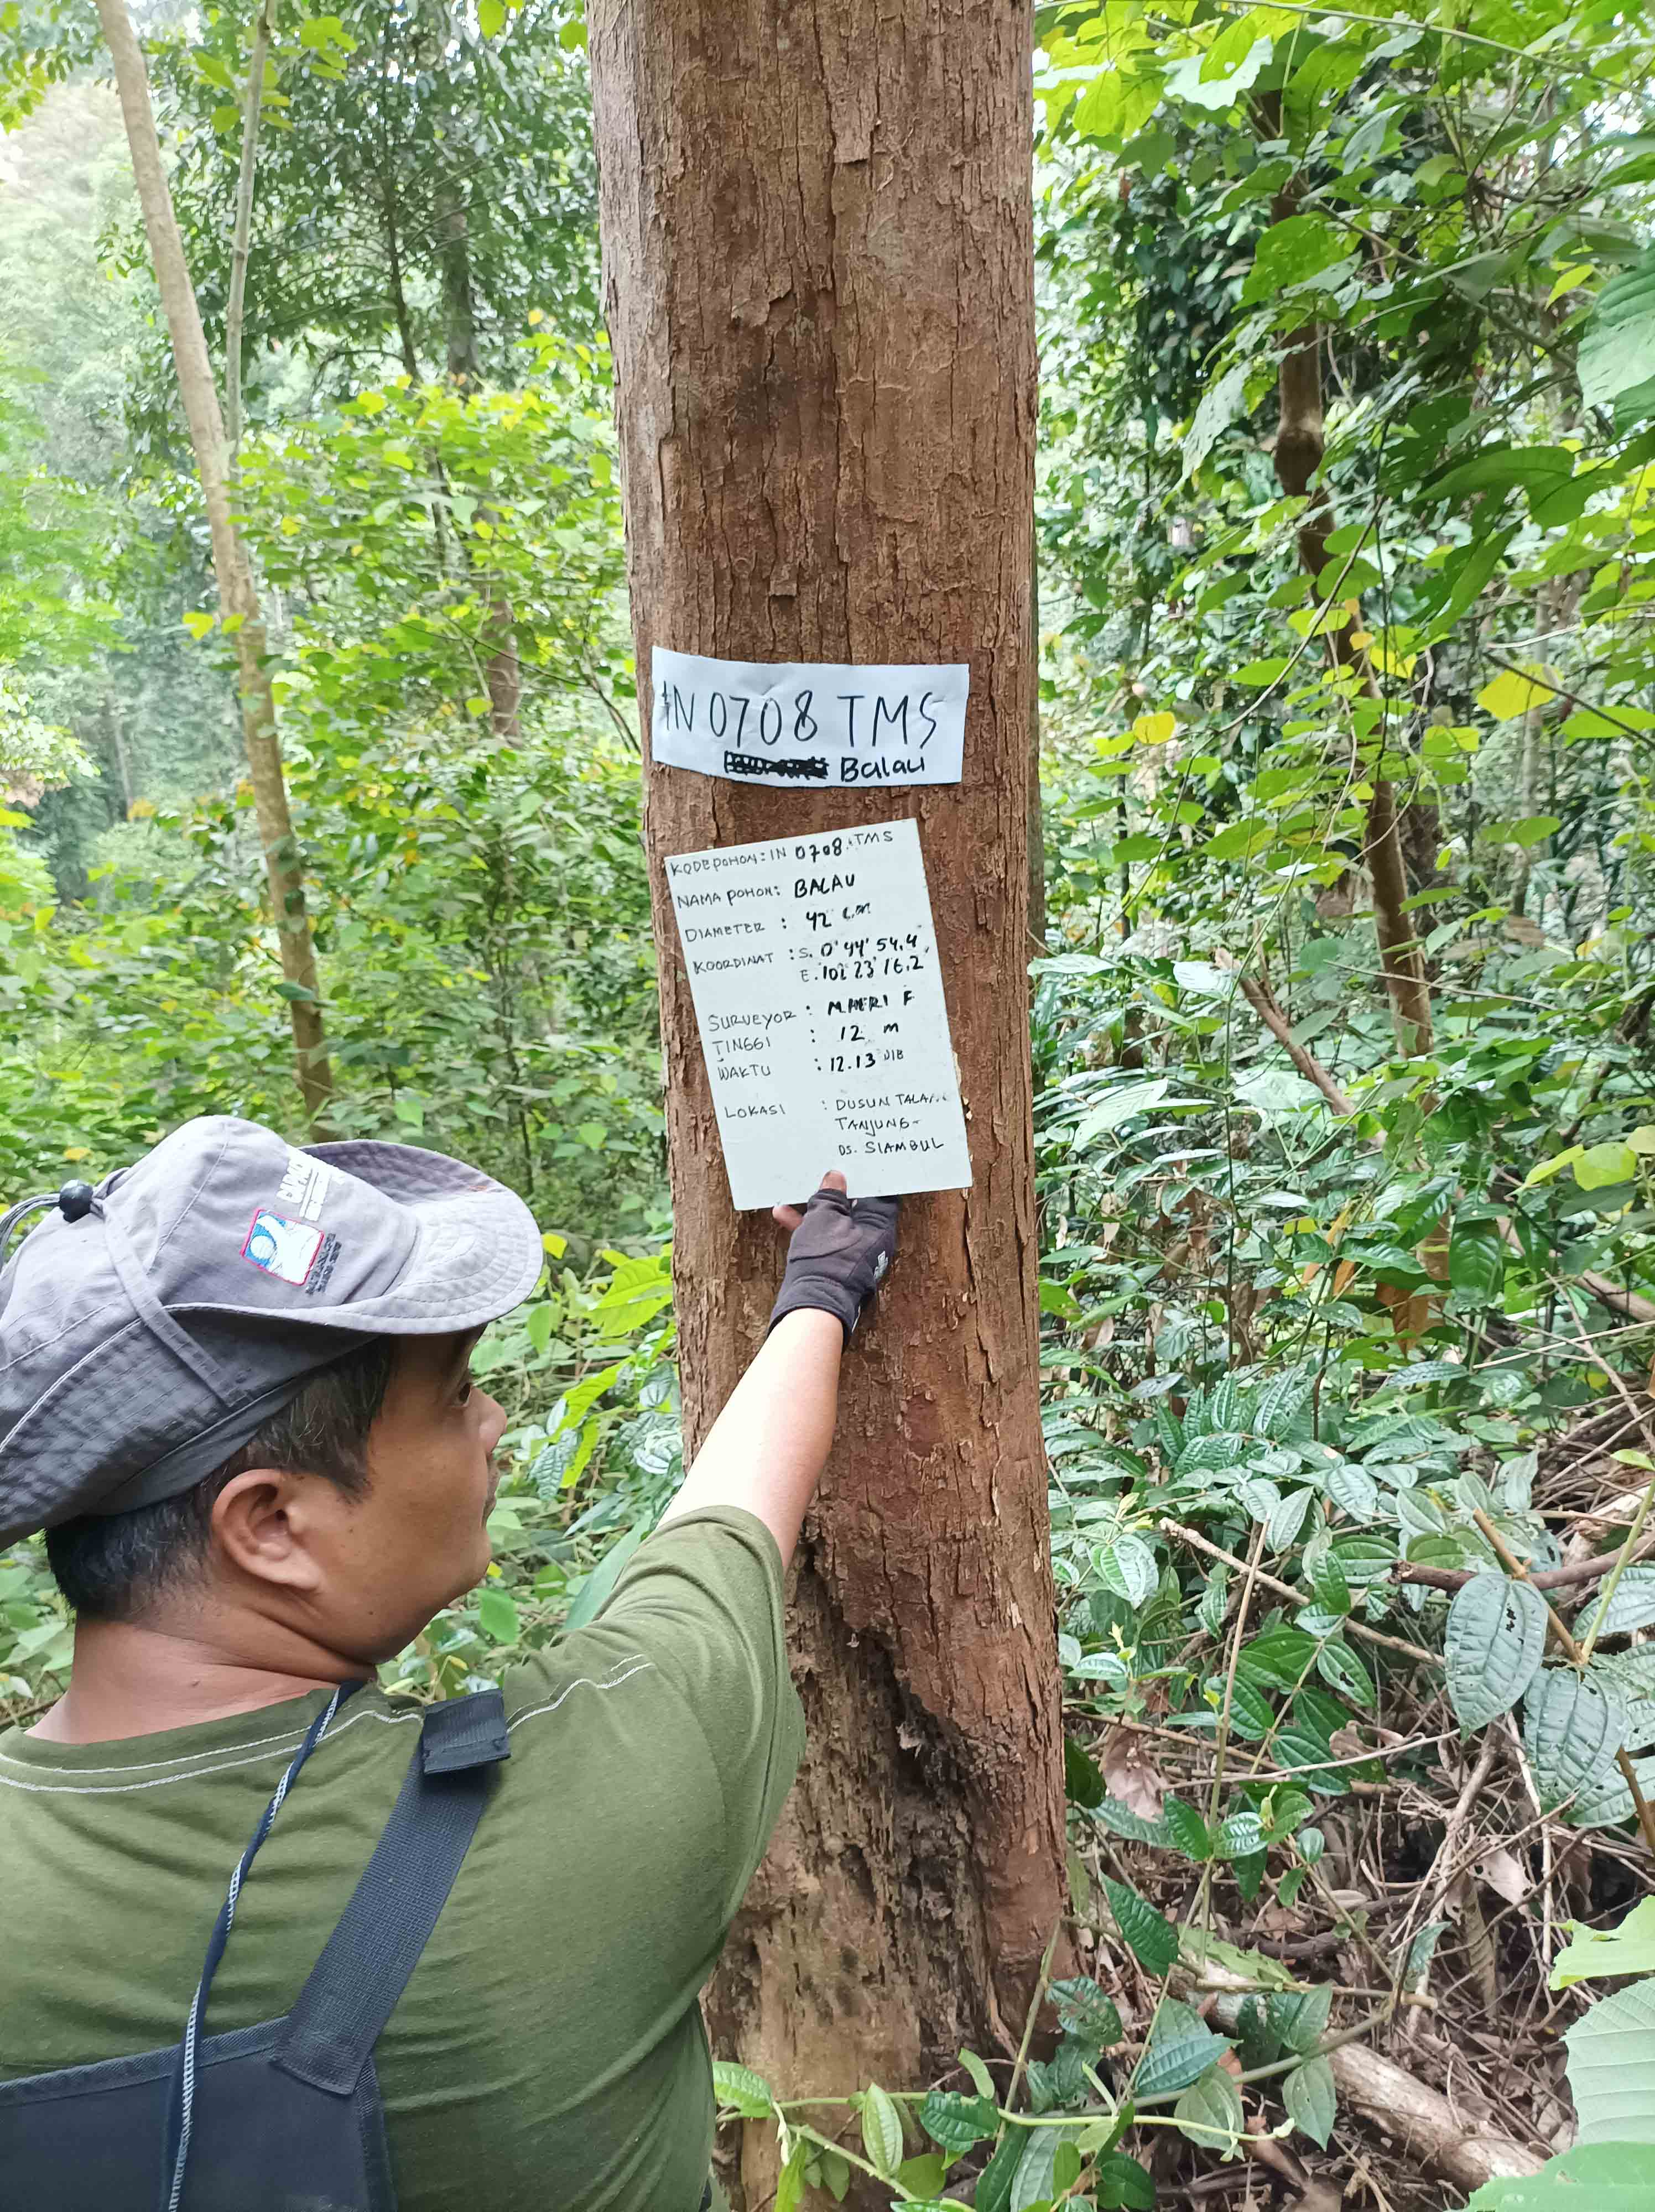 IN 0708 TMS
Balau
KODE POHON : IN 0708 TMS
NAMA POHON : BALAU
DIAMETER : 42 cm
KOORDINAT : S. 0° 44' 54,4
E. 102 23' 16,2
SURVEYOR : M. HERI F
TINGGI : 12 m
WAKTU : 12.13 WIB
LOKASI : DUSUN TALANG
TANJUNG -
DS. SIAMBUL